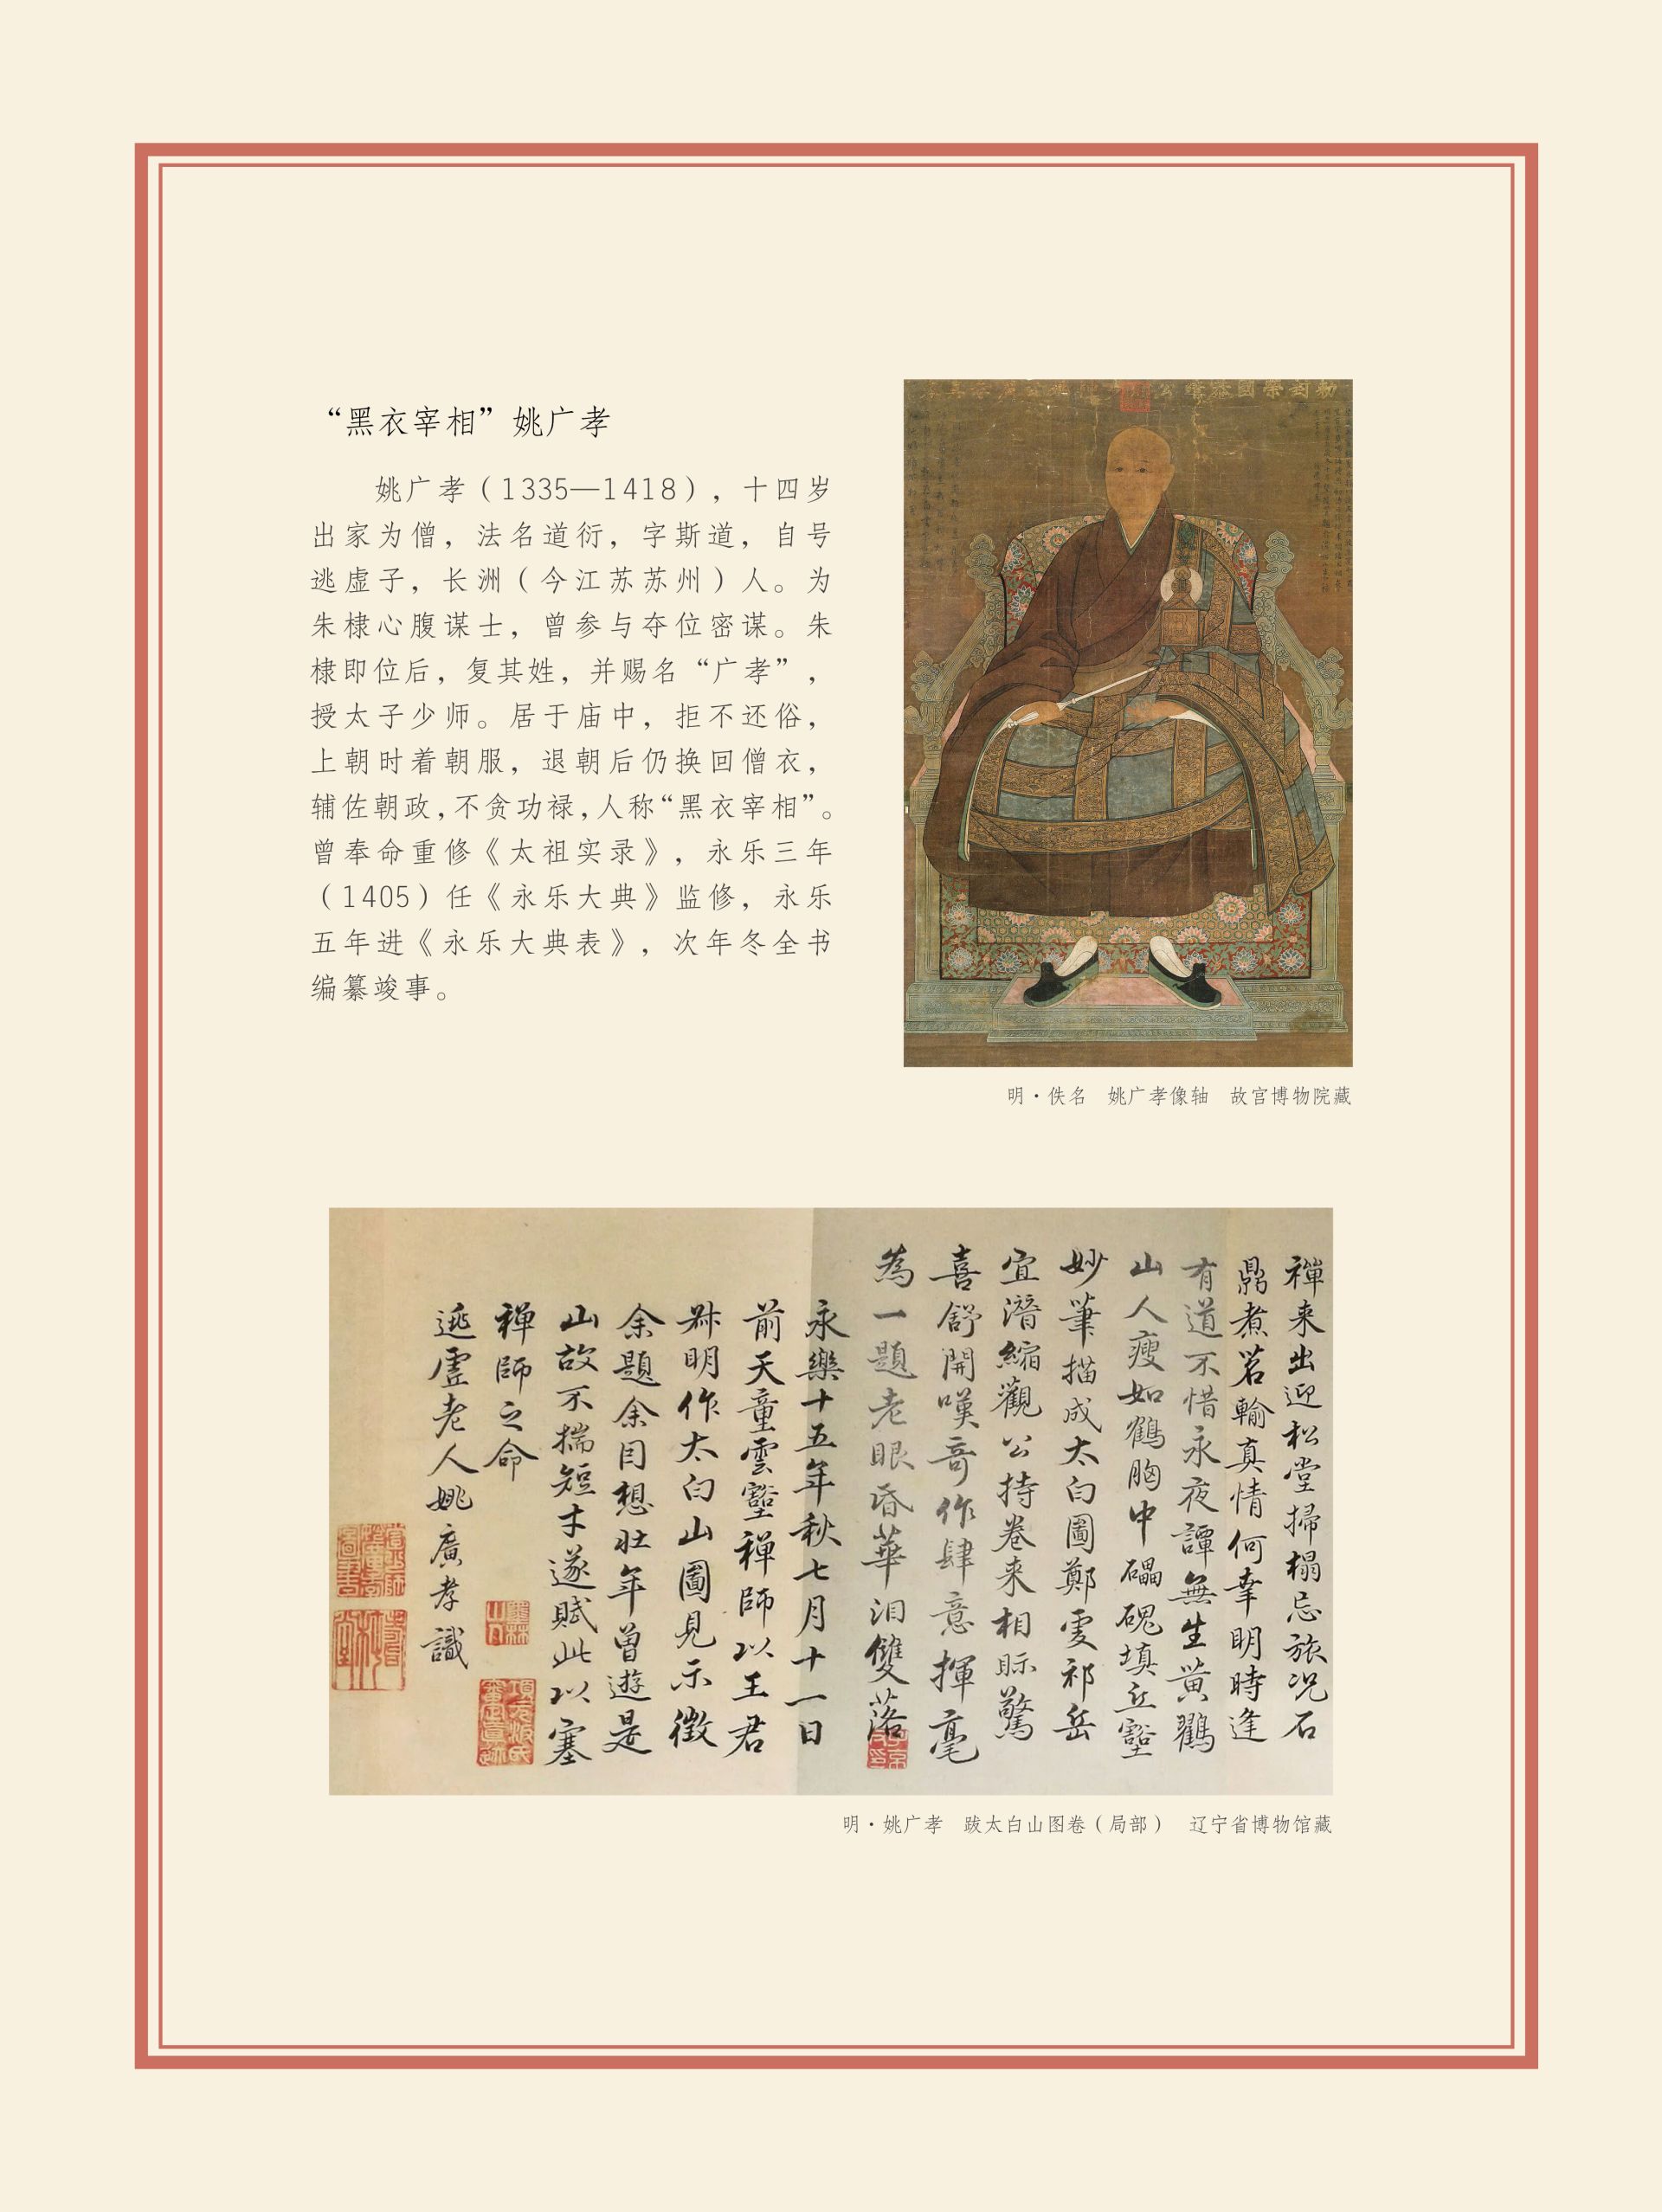 “黑衣宰相”姚广孝
姚广孝（1335—1418），十四岁
出家为僧，法名道衍，字斯道，自号
逃虚子，长洲（今江苏苏州）人。为
朱棣心腹谋士，曾参与夺位密谋。朱
棣即位后，复其姓，并赐名“广孝”，
授太子少师。居于庙中，拒不还俗，
上朝时着朝服，退朝后仍换回僧衣，
辅佐朝政，不贪功禄，人称“黑衣宰相”。
曾奉命重修《太祖实录》，永乐三年
（1405）任《永乐大典》监修，永乐
五年进《永乐大典表》，次年冬全书
编纂竣事。
明·佚名　姚广孝像轴　故宫博物院藏
禪来出迎松堂掃榻忘旅况石
鼎煮茗輸真情何幸明時逢
有道不惜永夜譚無生黄鸛
山人瘦如鶴胸中礧磈填丘壑
妙筆描成太白圖鄭虔祁岳
宜潛縮觀公持卷来相眎驚
喜舒開嘆奇作肆意揮毫
為一題老眼昏華泪雙落
永樂十五年秋七月十一日
前天童雲壑禅師以王君
叔明作太白山圖見示徵
余題余因想壮年曾遊是
山故不揣短才遂賦此以塞
禅師之命
逃虛老人姚廣孝識
明·姚广孝　跋太白山图卷（局部）　辽宁省博物馆藏